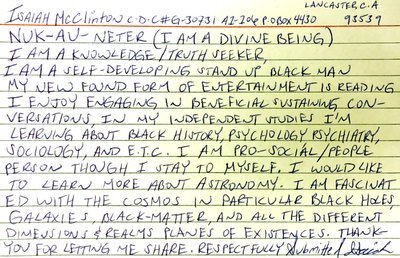 LANCASTER, C.A
ISAIAH MCCLINTON C.D.C#G-30731 A2-206 P.O BOX 4430 93539
NUK-AU-NETER (I AM A DIVINE BEING)
I AM A KNOWLEDGE/TRUTH SEEKER,
I AM A SELF-DEVELOPING STAND UP BLACK MAN
MY NEW FOUND FORM OF ENTERTAINMENT IS READING
I ENJOY ENGAGING IN BENEFICIAL SUSTAINING CON-
VERSATIONS, IN MY INDEPENDENT STUDIES I'M
LEARNING ABOUT BLACK HISTORY, PSYCHOLOGY PSYCHIATRY,
SOCIOLOGY, AND E.T.C. I AM PRO-SOCIAL/PEOPLE
PERSON THOUGH I STAY TO MYSELF. I WOULD LIKE
TO LEARN MORE ABOUT ASTRONOMY. I AM FASCINAT
ED WITH THE COSMOS IN PARTICULAR BLACK HOLES,
GALAXIES, BLACK-MATTER, AND ALL THE DIFFERENT
DIMENSIONS & REALMS PLANES OF EXISTENCES. THANK-
YOU FOR LETTING ME SHARE. RESPECTFULLY Submitted Isaiah